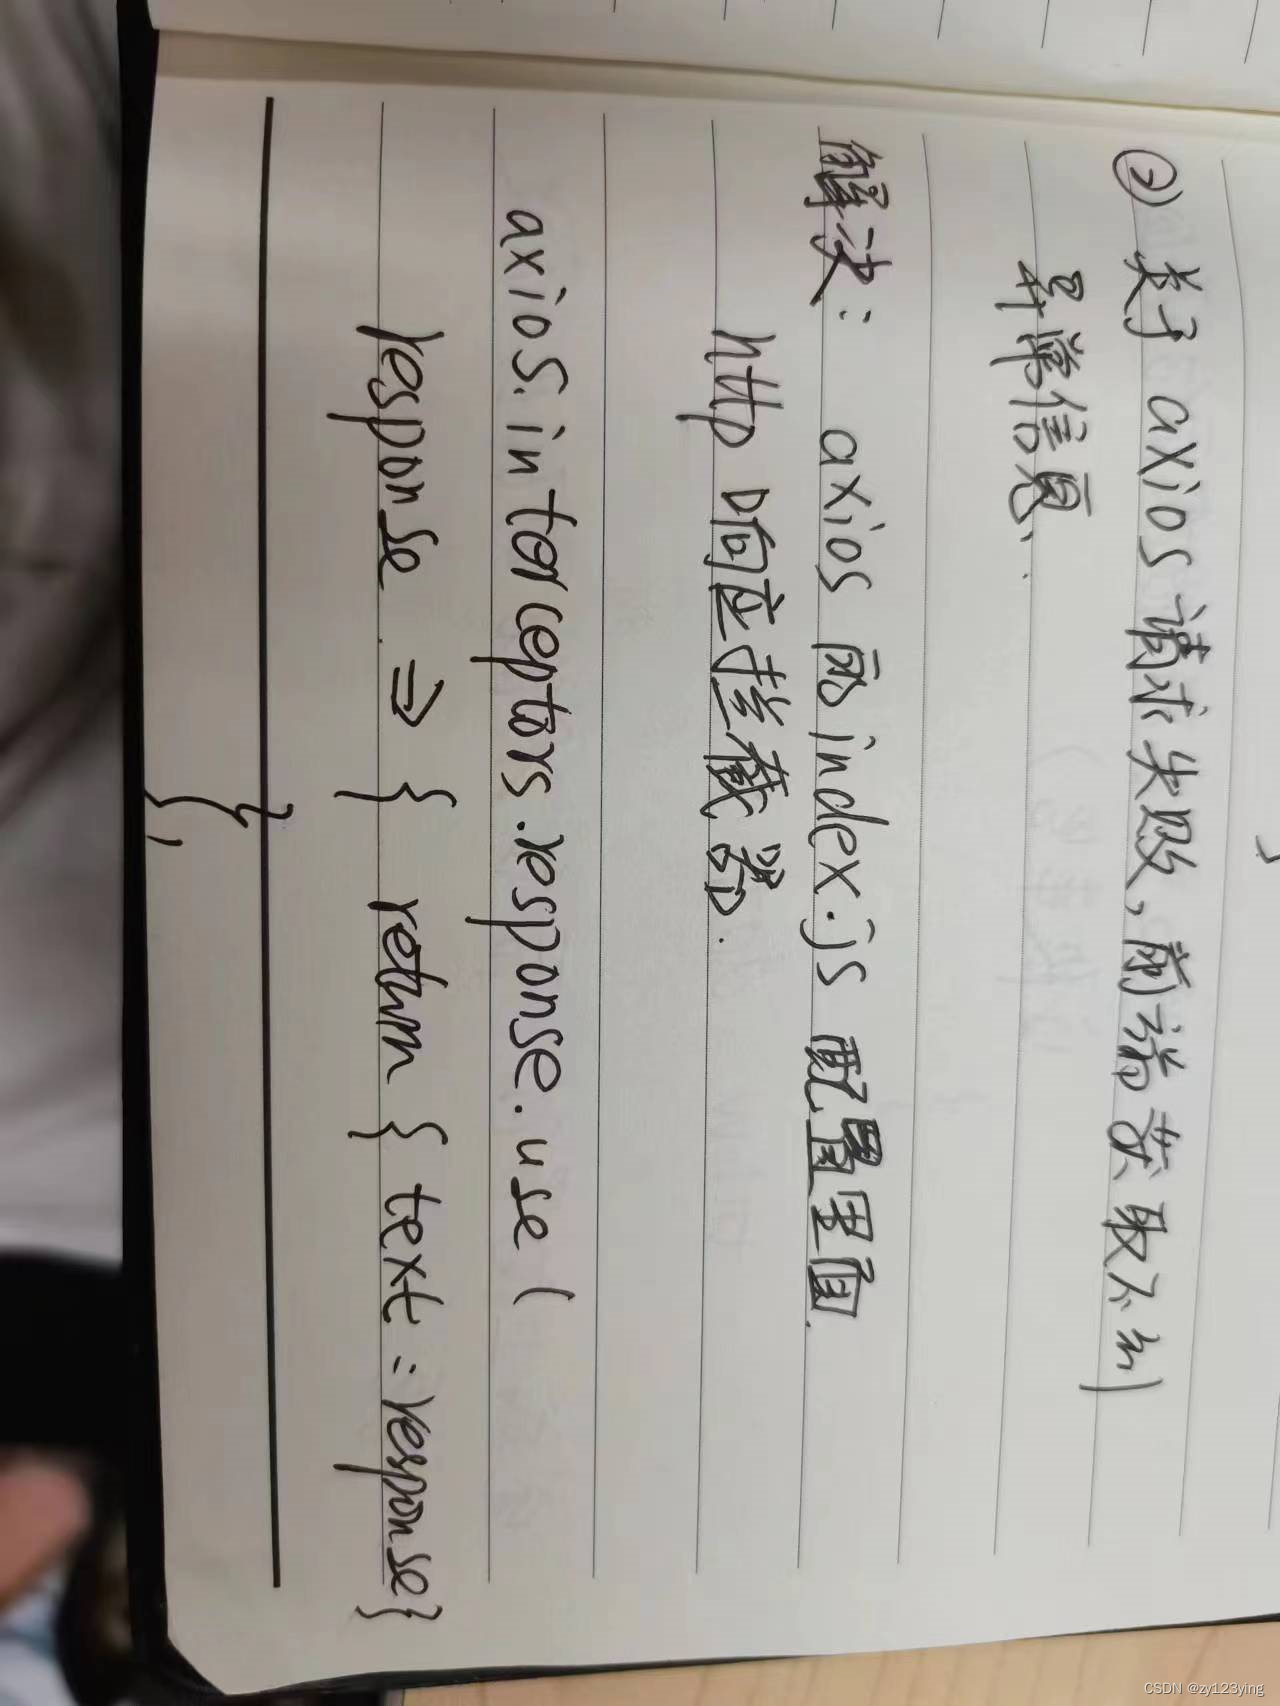 ② 关于 axios 请求失败，前端获取不到
异常信息.
解决： axios 的 index.js 配置里面.
http 响应拦截器.
axios.interceptors.response.use (
response => { return { text : response}
}
},
CSDN @zy123ying